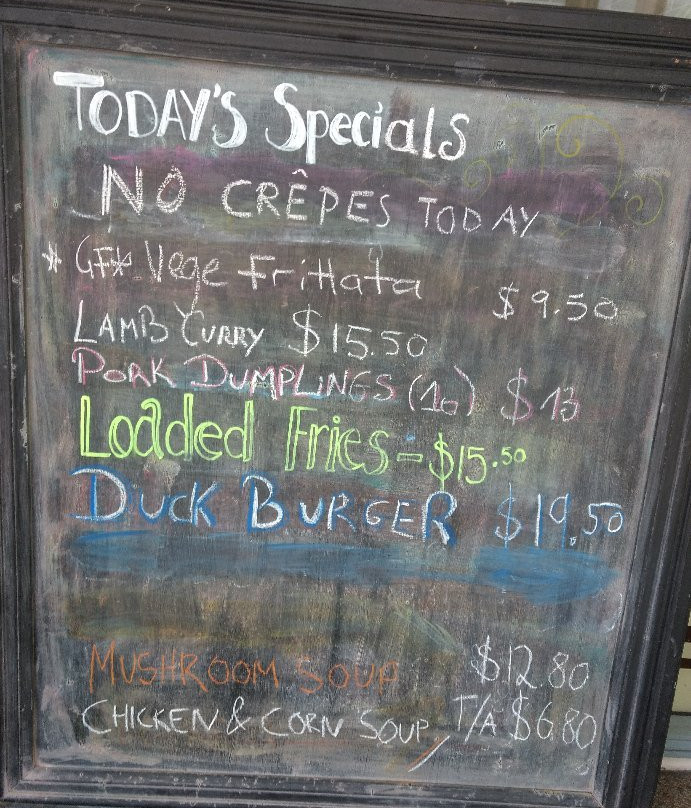 TODAY'S Specials
NO CRÊPES TODAY
* GF* Vege Frittata $9.50
LAMB CURRY $15.50
PORK DUMPLINGS (10) $13
Loaded Fries - $15.50
DUCK BURGER $19.50
MUSHROOM SOUP $12.80
CHICKEN & CORN SOUP, T/A $6.80